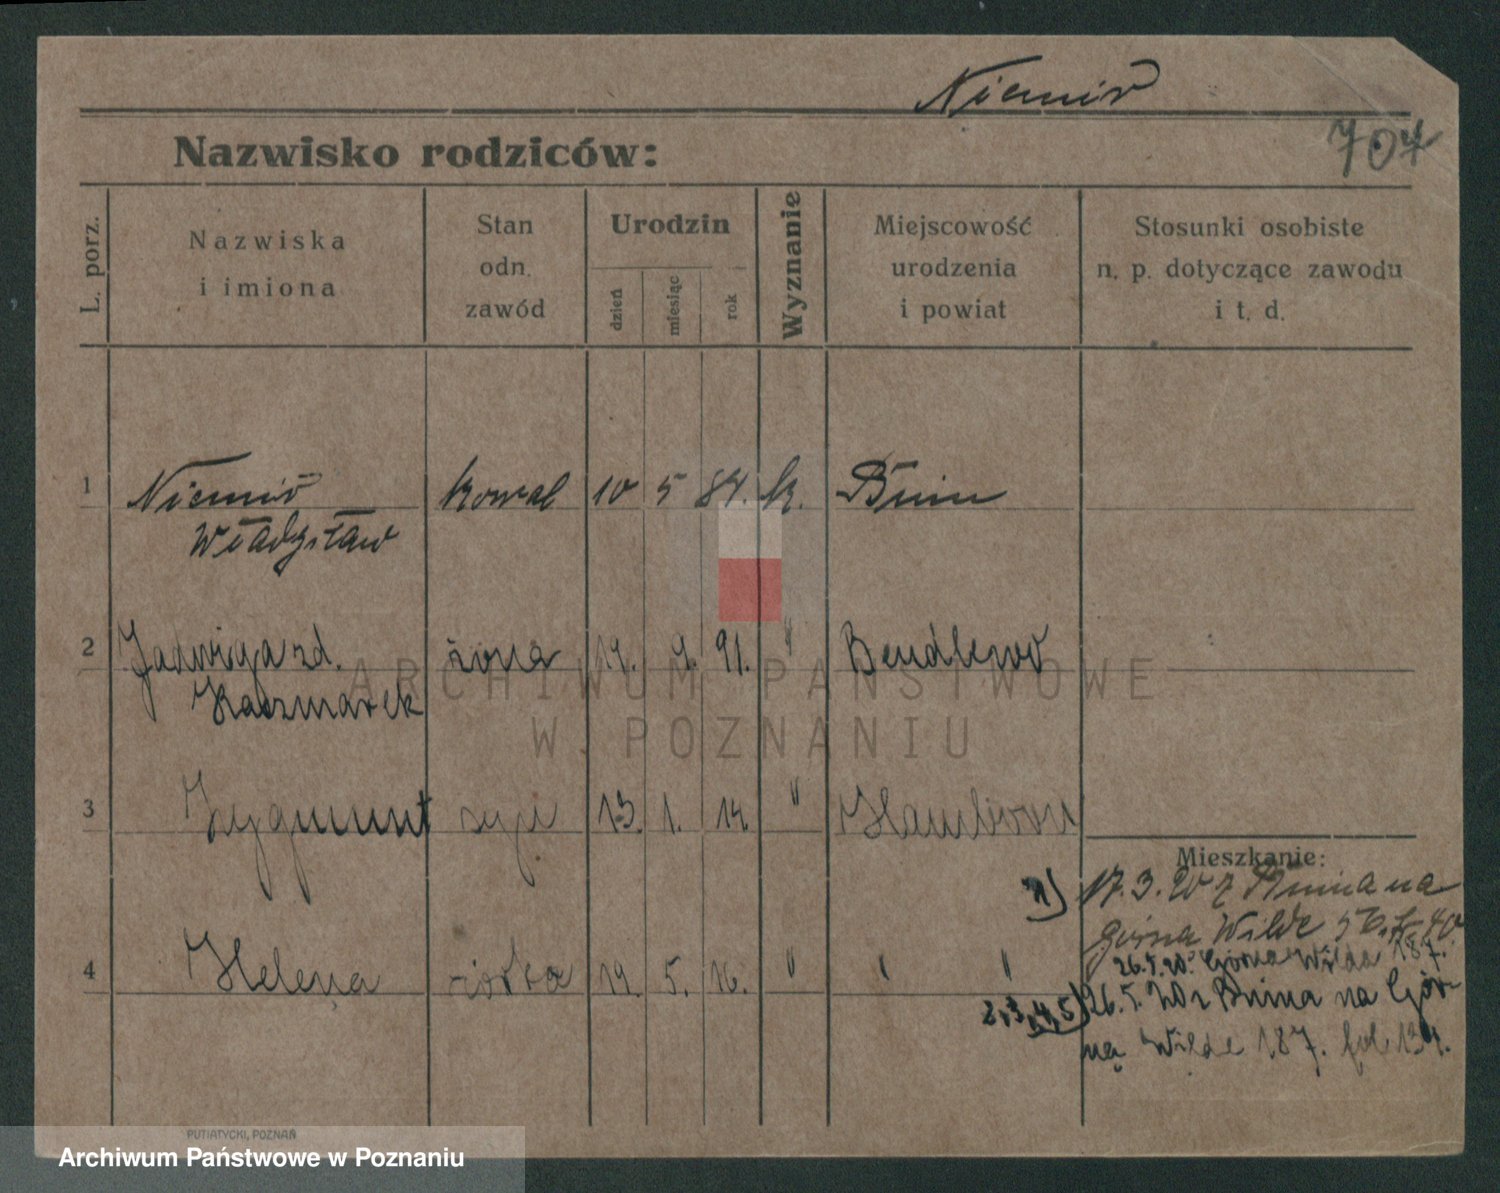 Niemir
707
Nazwisko rodziców:
L. porz.
Nazwiska
i imiona
Stan
odn.
zawód
Urodzin
dzień
miesiąc
rok
Wyznanie
Miejscowość
urodzenia
i powiat
Stosunki osobiste
n. p. dotyczące zawodu
i t. d.
1 Niemir kowal 10 5 84. k. Bnin
Władysław
2 Jadwiga zd. żona 14. 9. 91. " Bendlewo
Kaczmarek
3 Zygmunt syn 13. 1. 14. " Hamborn
Mieszkanie:
1) 17.3.20 z Bnina na
górna Wilde 40
26.4.20. Górna Wilda 187.
4 Helena córka 19. 5. 16. " " "
2,3,4,5) 26.5.20 z Bnina na Gór-
ną Wilde 187. fol. 134.
ARCHIWUM PAŃSTWOWE
W POZNANIU
PUTIATYCKI, POZNAŃ
Archiwum Państwowe w Poznaniu